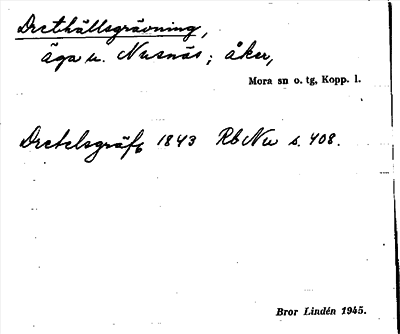 Drethällsgrävning,
äga u. Nusnäs; åker,
Mora sn o. tg, Kopp. l.
Dretelsgräft 1843 RbNu s. 408.
Bror Lindén 1945.